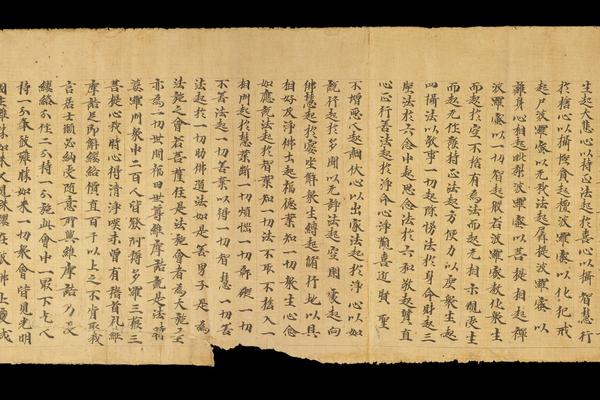 生起大悲心以持正法起於喜心以攝智慧行
於捨心以攝慳貪起檀波羅蜜以化犯戒
起尸波羅蜜以无我法起羼提波羅蜜以
離身心相起毗梨波羅蜜以菩提相起禪
波羅蜜以一切智起般若波羅蜜教化衆生
而起於空不捨有為法而起无相示現受生
而起无作護持正法起方便力以度衆生起
四攝法以敬事一切起除慢法於身命財起三
堅法於六念中起思念法於六和敬起質直
心正行善法起於淨命心淨歡喜近賢聖
不增惡人起調伏心以出家法起於淨心以如
說行起於多聞以无諍法起空閑處起向
佛慧起於宴坐解衆生縛起修行地以具
相好及淨佛土起福德業知一切衆生心念
如應說法起於智業知一切法不取不捨入一
相門起於慧業斷一切煩惱一切鄣礙一切
不善法起一切善業以得一切智慧一切善
法起於一切助佛道法如是善男子是為
法施之會若菩薩住是法施會者為大施主
亦為一切世間福田世尊維摩詰說是法時
婆羅門衆中二百人皆發阿耨多羅三藐三
菩提心我時心得清淨嘆未曾有稽首礼維
摩詰足即解纓絡價直百千以上之不肯取我
言居士願必納受隨意所與維摩詰乃受
纓絡分作二分持一分施此會中一最下乞人
持一分奉彼難勝如來一切衆會皆見光明
國土難勝如來又見珠纓在彼佛上變成